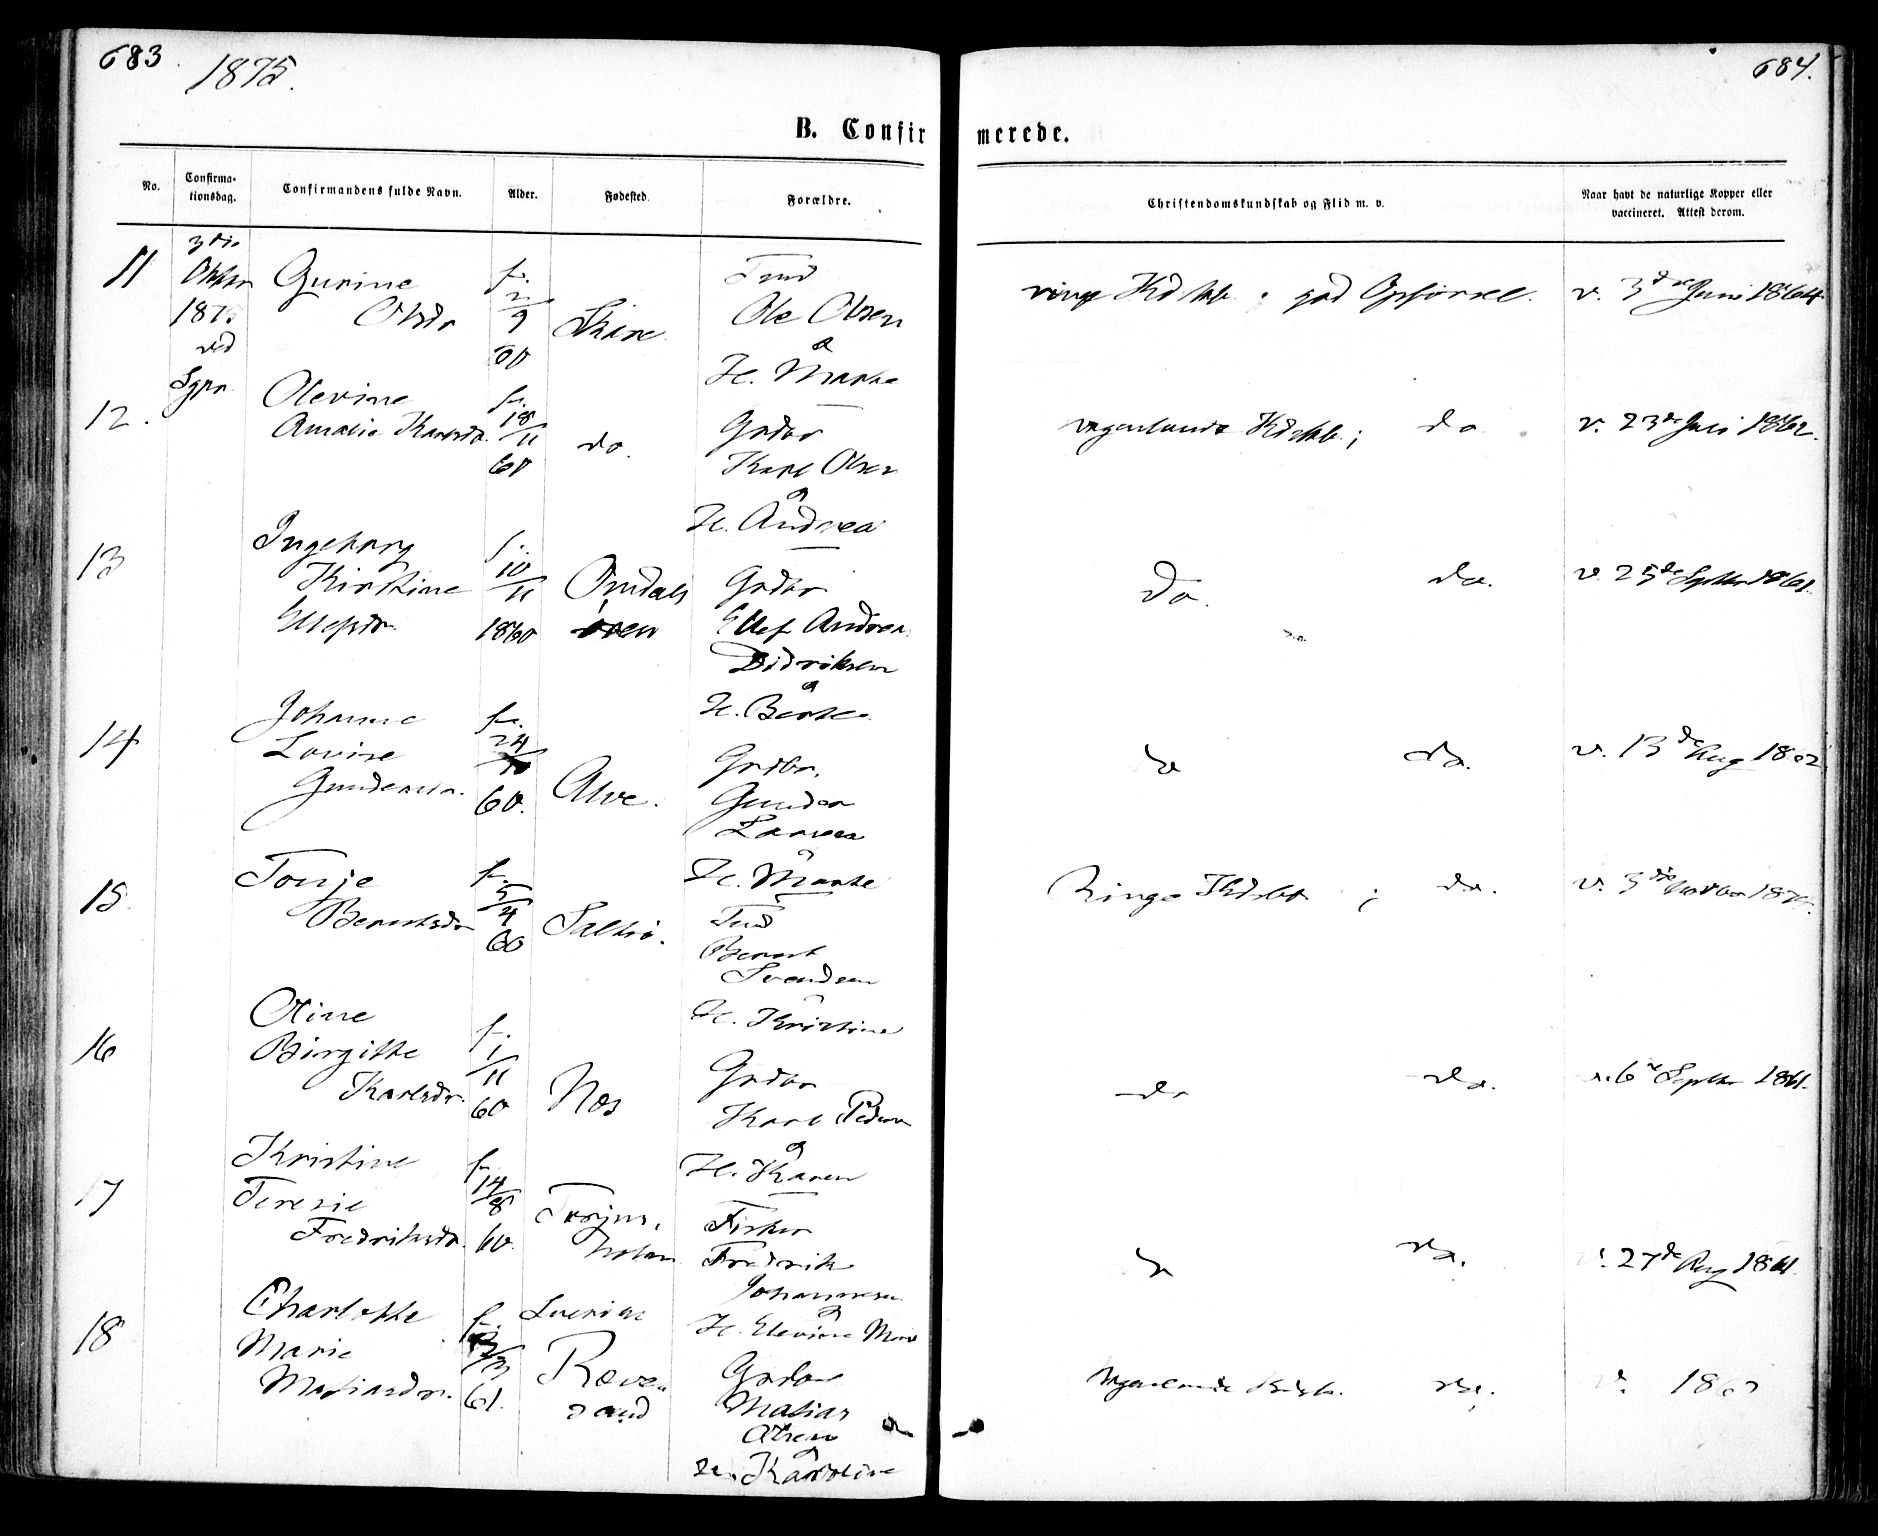 683
1875.
684.
B. Confirmerede.
No.
Confirma-
tionsdag.
Confirmandens fulde Navn.
Alder.
Fødested.
Forældre.
Christendomskundskab og Flid m. v.
Naar havt de naturlige Kopper eller
vaccineret. Attest derom.
11
3die
Oktbr
1875
ved
Gurine
Olsdr
f.
2/9
60
Skare
Ind
Ole Olsen
&
H. Marte
ringe Kdskb. god Opførsel.
v. 3die Juni 1864
12.
Olevine
Amalie Karlsdr.
f.
18/11
60
do.
Grdbr
Karl Olsen
&
H. Andrea
Kdskb.;
do
v. 23de Juli 1862.
13
Ingeborg
Kirstine
Ellefsdr.
f.
10/11
1860
Omdals
øren
Grdbr
Ellef Andreas
Didriksen
&
H. Berte
Do.
do.
v. 25de Septbr 1861.
14
Johanne
Lovise
Gundersdr.
f.
24/10
60.
Alve.
Grdbr.
Gunder
Larsen
&
H. Marte
do
do.
v. 13de Aug 1862
15.
Tonje
Berntsdr
f.
5/4
60
Saltrø.
Ind
Bernt
Svendsen
&
H. Kristine
Ringe Kdskb
;
do.
v. 3die
16
Oline
Birgitte
Karlsdr.
f.
1/11
60
Næs
Grdbr
Karl Peders
&
H. Karen
do
do.
v. 6te Septbr 1861.
17
Kristine
Teresie
Fredriksdr.
f.
14/8
60.
Torjus
holmen
Fisker
Fredrik
Johannesen
&
H. Elevine Marie
do
do.
v. 27de Aug 1861.
18
Charlotte
Marie
Matiasdr.
f.
61.
Ræve
sand
Grdbr
Matias
Olsen
&
H. Karoline
do;
v. 186